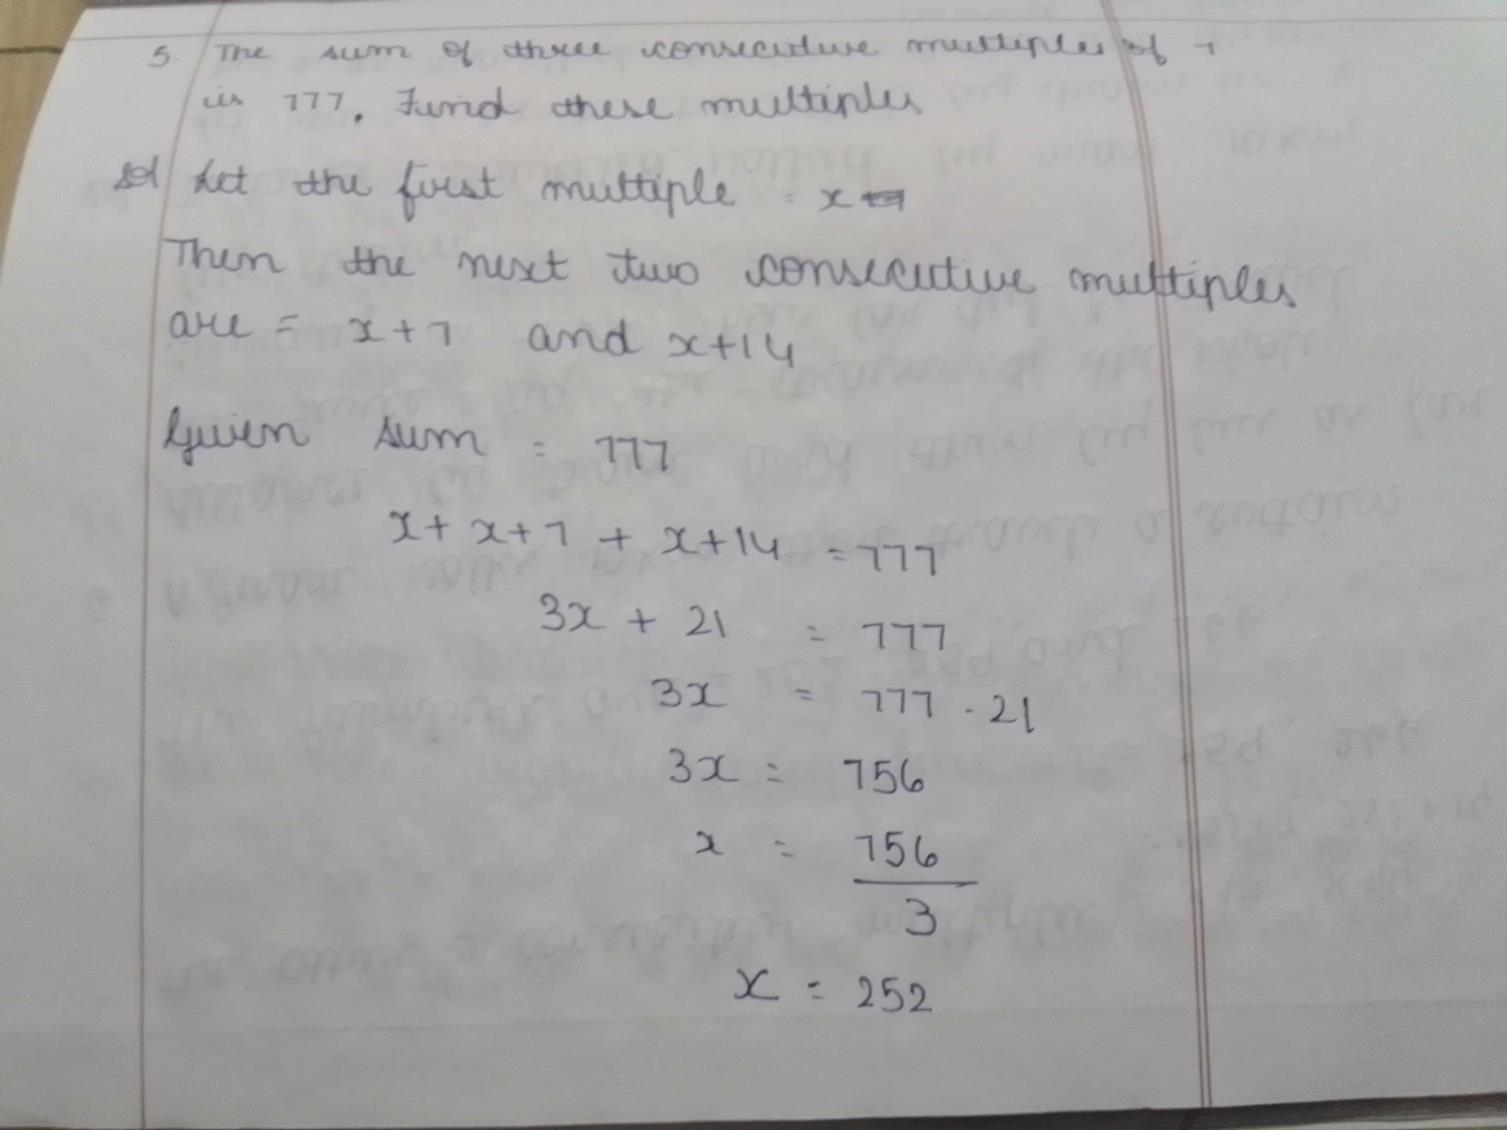 5. The sum of three consecutive multiples of 7
is 777. Find these multiples
Sol Let the first multiple = x
Then the next two consecutive multiples
are = x+7 and x+14
Given sum = 777
x+ x+7 + x+14 = 777
3x + 21 = 777
3x = 777 - 21
3x = 756
x = 756
3
x = 252